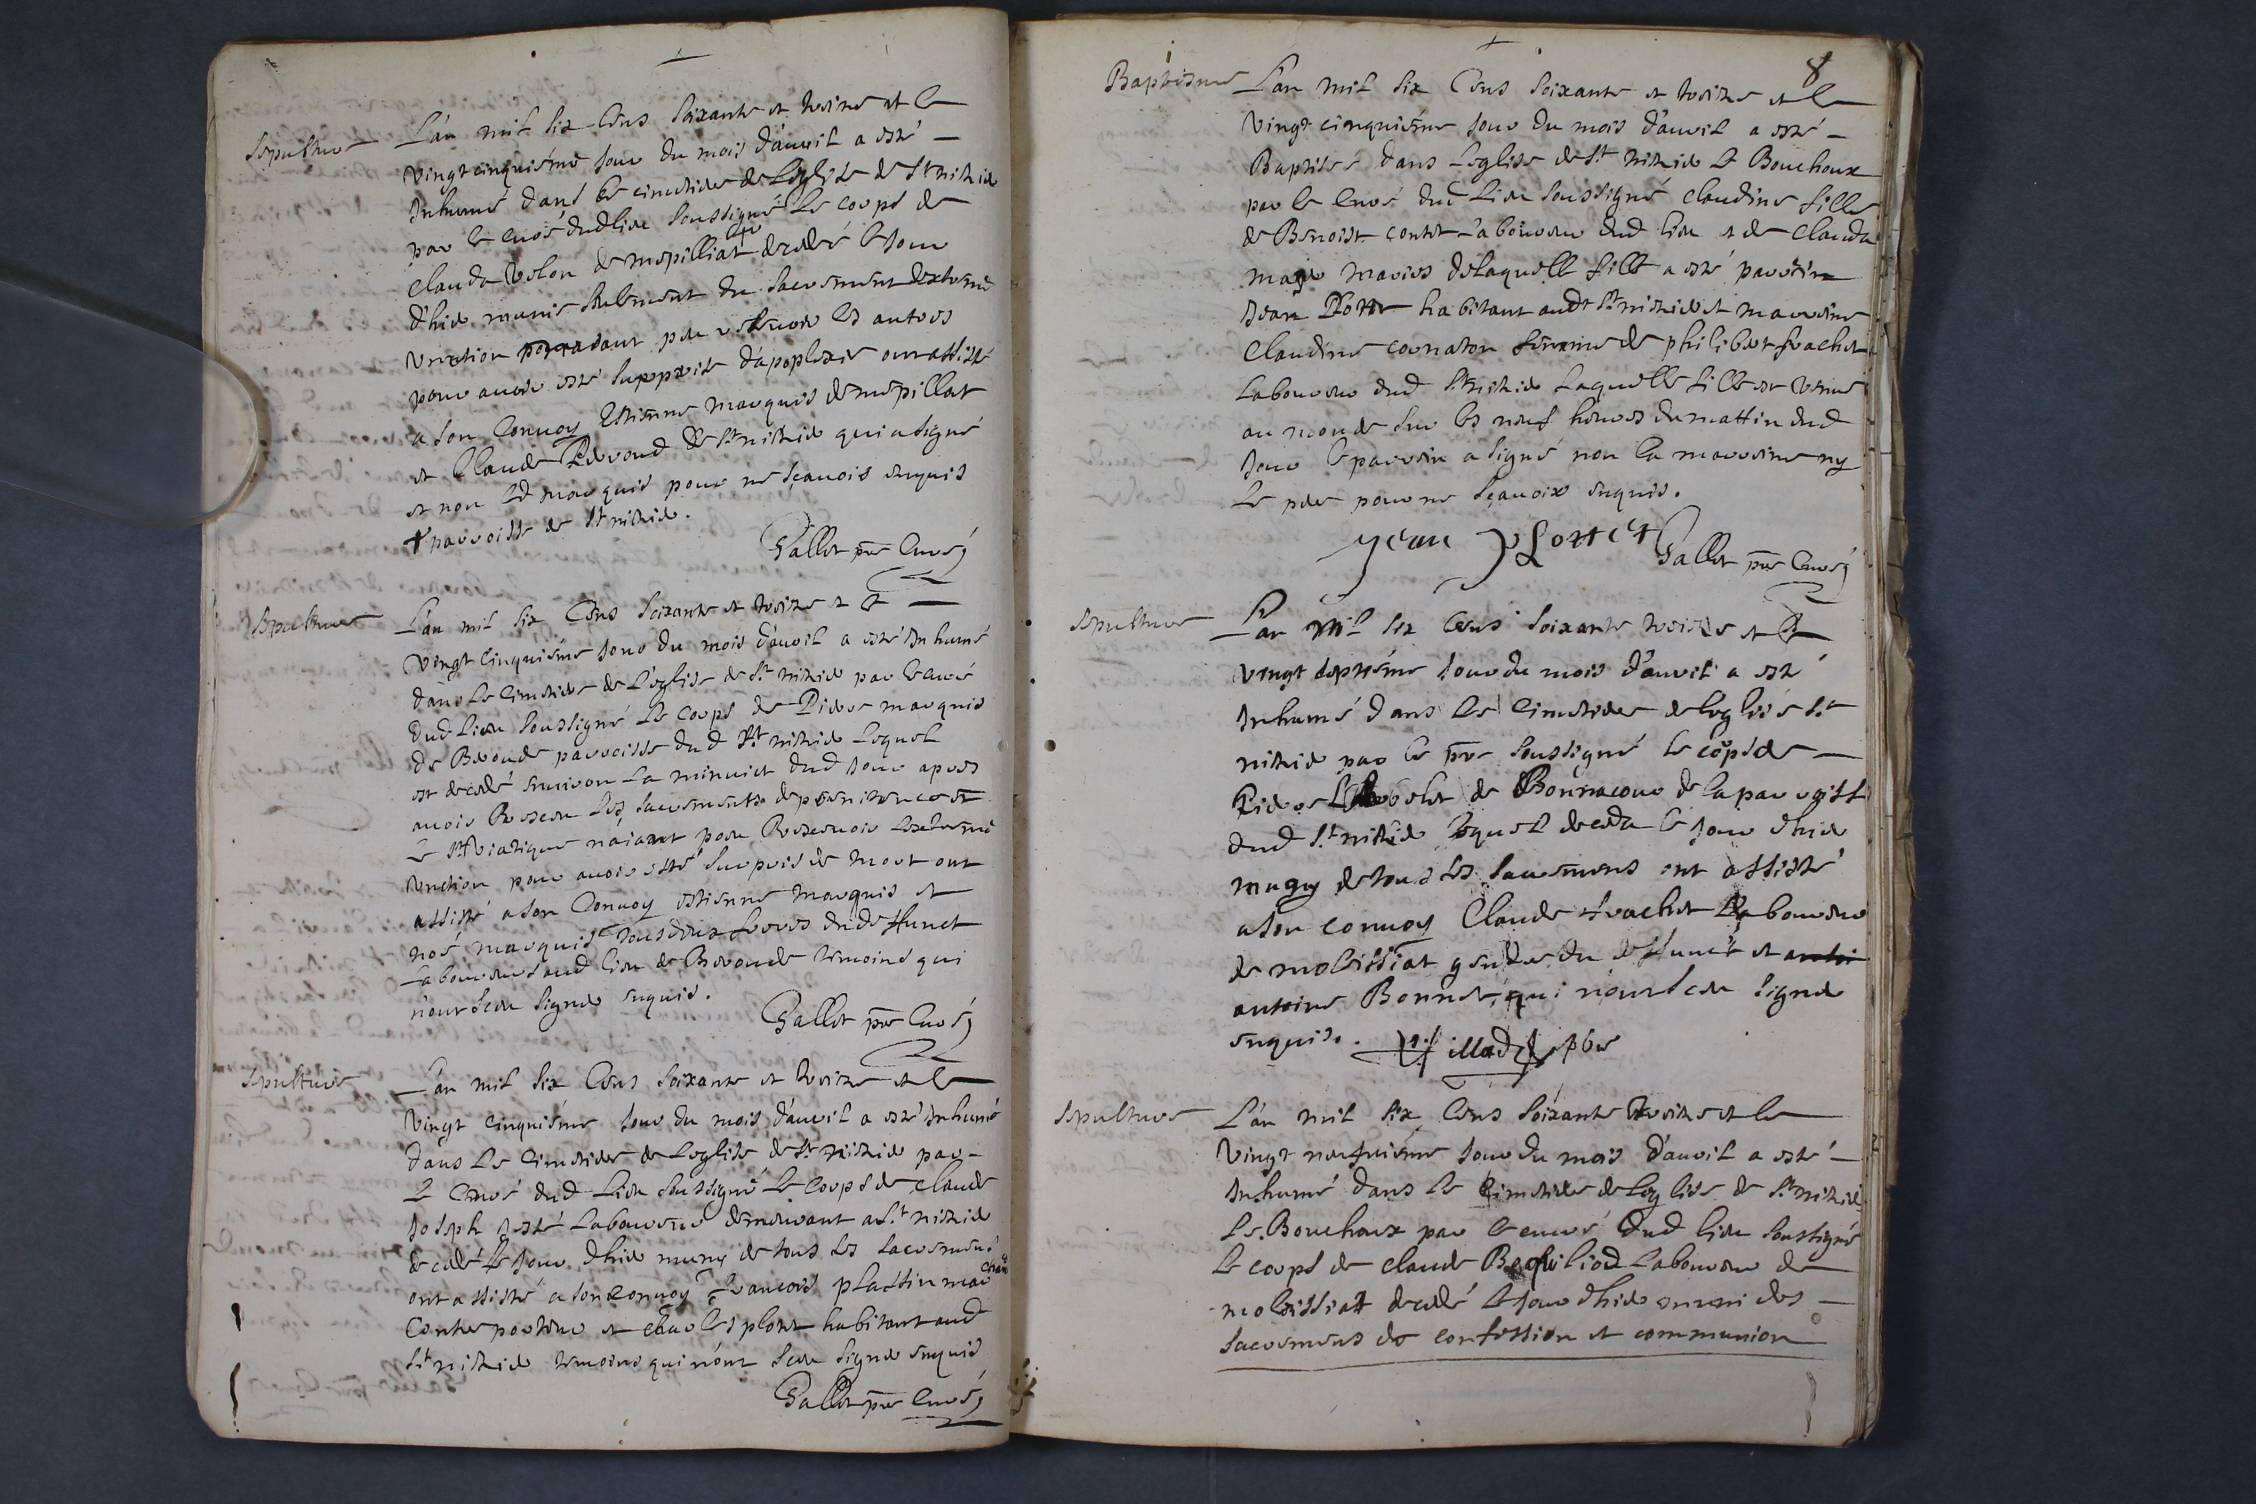 Sepulture
L'an mil six Cens soixante et treize et le
vingt cinquième jour du mois d'auril a esté
Inhumé dans le cimetiere de L'eglise de St nisie
par le curé dud lieu soussigné Le corps de
Clauda de mepilliat + decedé le jour
d'hier munie seulement du sacrement dextreme
Vnction pour
pour auoir esté surprise d'apoplexie ont assisté
a son Conuoy Estienne marquis de mepillat
et Claude Peruoud de St nisie qui a signé
et non led marquis pour ne sçauoir enquis
+ parroisse de St nisie.
Gallet pre Curé
Sepulture
L'an mil six Cens soixante et treize et le
vingt cinquième jour du mois d'auril a esté Inhumé
dans Le cimetiere de L'eglise de St nisie par le curé
dud Lieu soussigné Le corps de Pierre marquis
de Beronde parroisse dud St nisie Lequel
est decedé enuiron La minuict dud jour apres
auoir Receu Les sacrements de penitence et
Le St Viatique naiant peu Receuoir Lextreme
Vnction pour auoir esté surpris de mort ont
assisté a son Conuoy estienne marquis et
noé marquis tous deux freres du deffunct
Laboureurs aud lieu de Beronde temoins qui
n'ont sceu signer enquis.
Gallet pre Curé
Sepulture
L'an mil six Cens soixante et treize et le
Vingt cinquième jour du mois d'auril a esté Inhumé
dans Le cimetiere de Leglise de St nisie par
Le Curé dud Lieu soussigné Le Corps de Claude
Joseph Laboureur demeurant a St nisie
decedé Le jour d'hier muny de tous Les sacremens
ont assisté a son conuoy francois plassin mar chan
Conterporteur et charles plotet habitant aud
St nisie temoins qui n'ont sceu signer enquis
Gallet pre Curé
8
Baptesme
L'an mil six Cens soixante et treize et le
Vingt cinquième jour du mois d'auril a esté
Baptisée dans L'eglise de St nisie Le Bouchoux
par le curé dud Lieu soussigné claudine fille
de Benoist contet Laboureur dud lieu et de clauda
mariés de laquelle fille a esté parrein
Jean Plotet habitant audt St nisie et marreine
Claudine cornaton femme de philibert frachet
Laboureur dud St nisie Laquelle fille est venue
au monde sur les neuf heures du mattin dud
Jour le parrein a signé non la marreine ny
Le pere pour ne sçauoir enquis.
jean plottet Gallet pre Curé
Sepulture
L'an mil six Cens soixante treize et le
vingt septième jour du mois d'auril a esté
Inhumé dans Le cimetiere de leglise St
nisie par le pre soussigné le corps de
Pierre de Bonnacour de la parroisse
dud St nisie lequel deceda le jour dhier
muny de tous Les sacremens ont assisté
a son conuoy Claude frachet Laboureur
de molissiat gendre du deffunct et
antoine Bonnet, qui n'ont sceu signer
enquis. pbre
Sepulture
L'an mil six Cens soixante treize et le
Vingt neufuième jour du mois d'auril a esté
Inhumé dans Le cimetiere de leglise de St nisie
Le Bouchoux par le curé dud lieu soussigné
Le corps de claude Laboureur de
molissiat decedé Le jour dhier muni des
sacremens de confession et communion